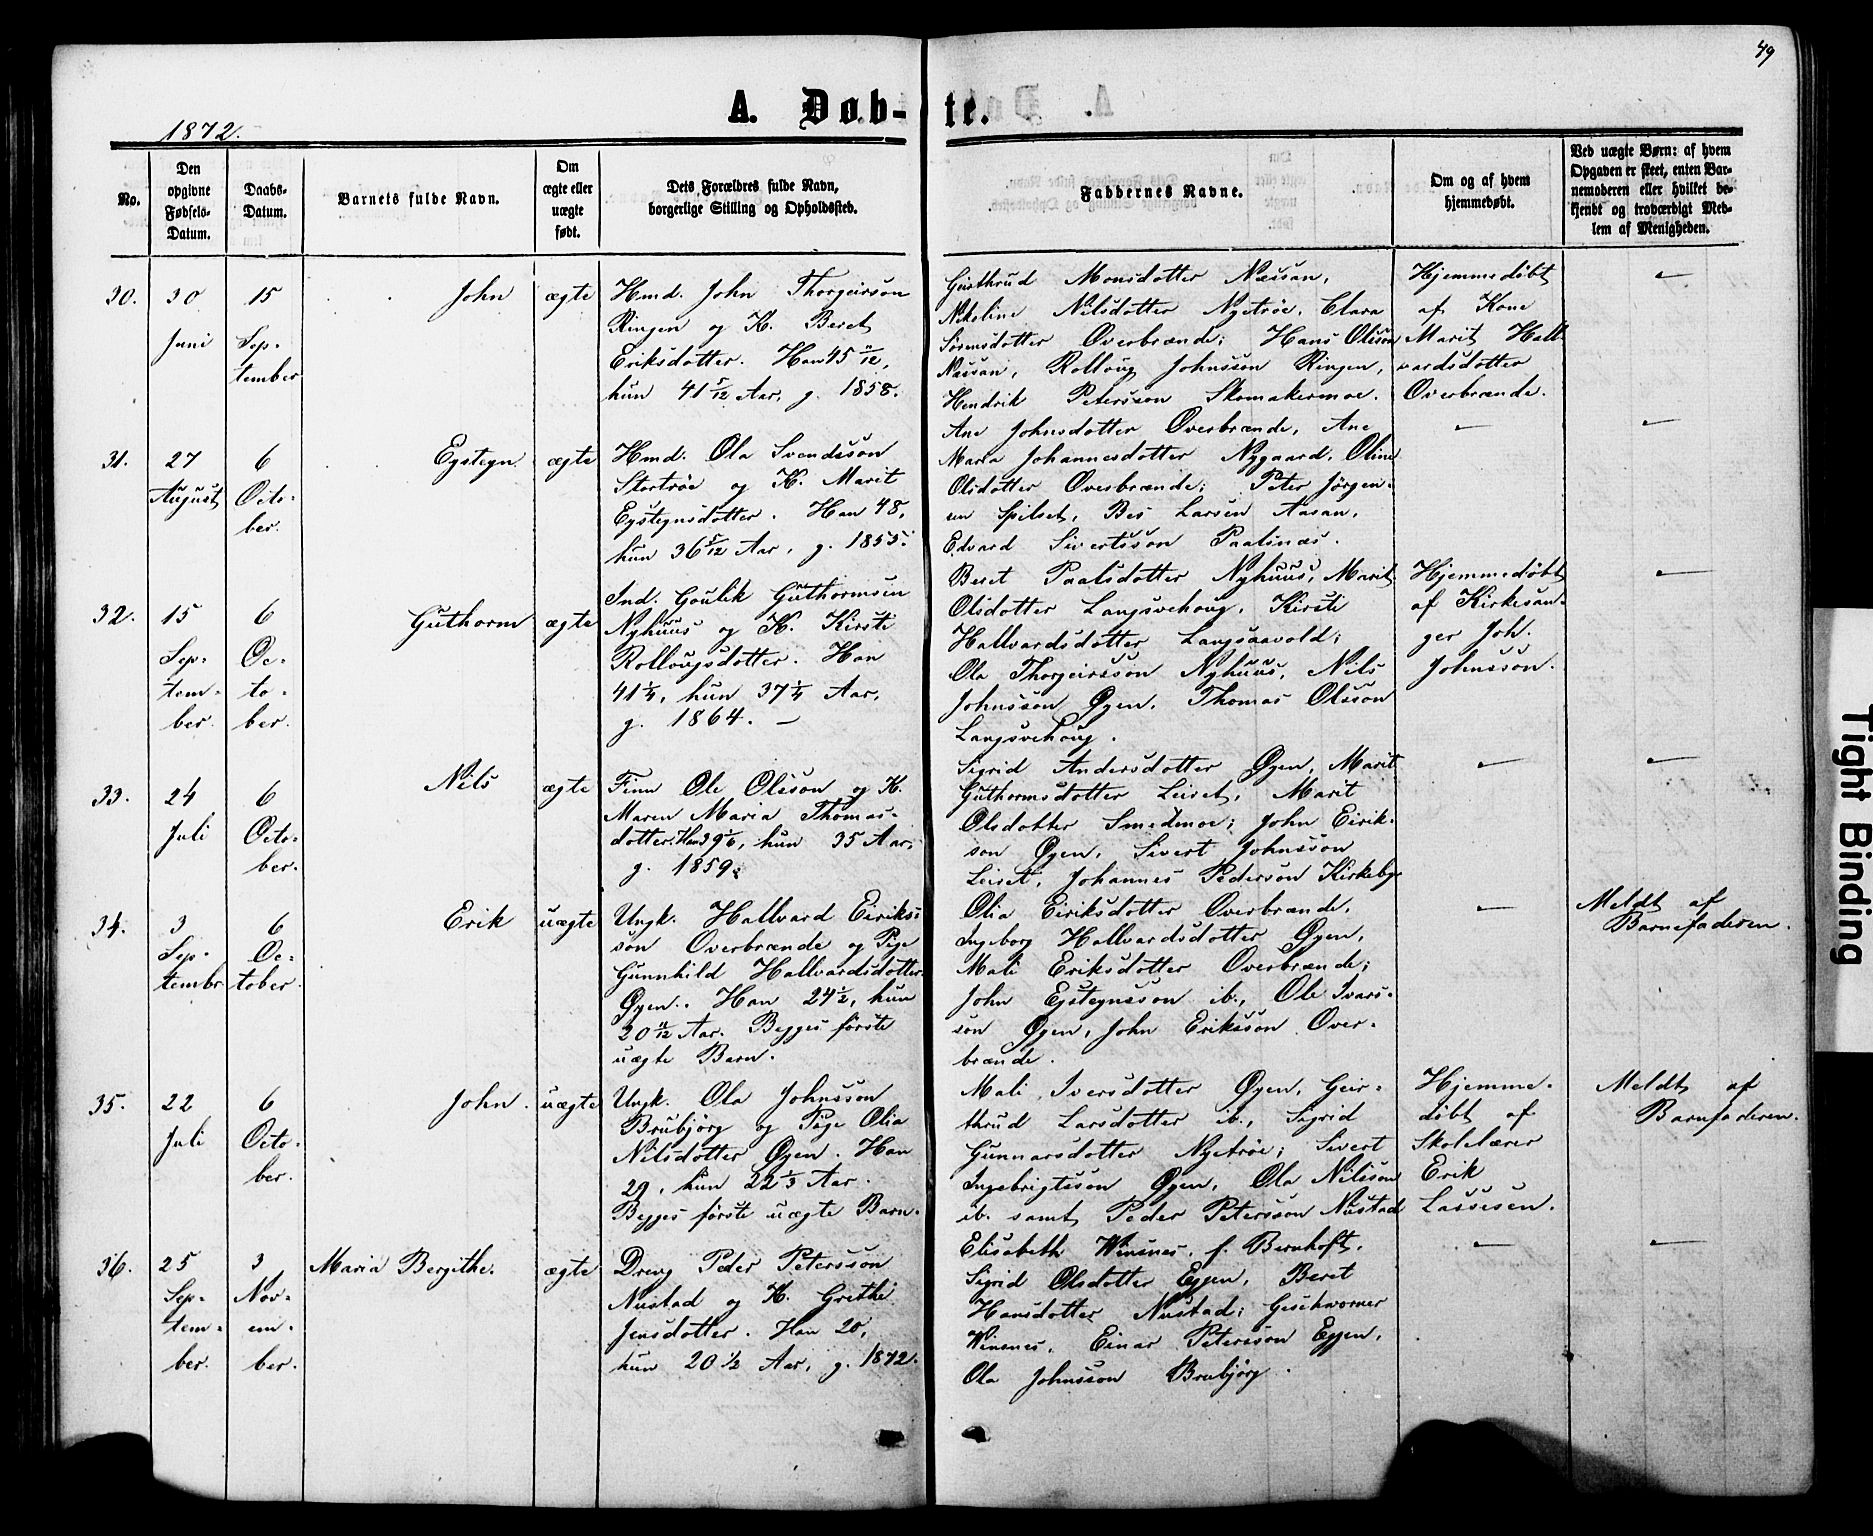 49
A. Døb-te.
1872.
No.
Den opgivne Fødsels-Datum.
Daabs-Datum.
Barnets fulde Navn.
Om ægte eller uægte født.
Dets Forældres fulde Navn, borgerlige Stilling og Opholdssted.
Faddernes Navne.
Om og af hvem hjemmedøbt.
Ved uægte Børn: af hvem Opgaven er skeet, enten Barnemoderen eller hvilket bekjendt og troværdigt Medlem af Menigheden.
30.
30 Juni
15 September
John
ægte
Hmd. John Thorgeirson
Ringen og K. Beret
Eriksdotter. Han 45 11/12,
hun 41 5/12 Aar, g. 1858.
Gurthrud Monsdotter Næssan,
Nikoline Nilsdotter Nytrøe, Clara
Sørensdotter Overbrænde; Hans Olsson
Næssan, Rolloug Johnsson Ringen,
Hendrik Petersson Skomakermoe.
Hjemmedøbt
af Kone
Marit Hall-
vardsdotter
Overbrænde.
—
31.
27 August
6 October.
Eystegn
ægte
Hmd. Ola Svendsson
Stortrøe og K. Marit
Eystegnsdotter. Han 48,
hun 36 5/12 Aar, g. 1855.
Ane Johnsdotter Overbrænde, Ane
Maria Johannesdotter Nygaard, Oline
Olsdotter Overbrænde; Peter Jørgen-
sen Spilset, Bes Larsen Aasan,
Edvard Sivertsson Paalsnæs.
—
—
32.
15 September.
6 October.
Guthorm
ægte
Ind. Goulik Guthormsen
Nyhuus og K. Kirsti
Rollougsdotter. Han
41 1/4, hun 37 1/4 Aar,
g. 1864. —
Beret Paalsdotter Nyhuus, Marit
Olsdotter Langsvehoug, Kirsti
Hallvardsdotter Langsaavold;
Ola Thorgeirsson Nyhuus, Nils
Johnsson Øyen, Thomas Olsson
Langsvehoug.
Hjemmedøbt
af Kirkesan-
ger Joh.
Johnsson.
—
33.
24 Juli
6 October.
Nils
ægte
Finn Ole Olsson og K.
Maren Maria Thomas-
dotter. Han 39 1/6, hun 35 Aar,
g. 1859.
Sigrid Andersdotter Øyen, Marit
Guthormsdotter Leiset, Marit
Olsdotter Smedmoe; John Eirik-
son Øyen, Sivert Johnsson
Leiset, Johannes Pederson Kirkeby.
—
—
34.
3 Septembr
6 October.
Erik
uægte
Ungk. Hallvard Eiriks-
son Overbrænde og Pige
Gunnhild Hallvardsdotter
Øyen. Han 24 1/2, hun
20 11/12 Aar. Begges første
uægte Barn.
Olia Eiriksdotter Overbrænde,
Ingeborg Hallvardsdotter Øyen,
Mali Eriksdotter Overbrænde;
John Eystegnsson ib., Ole Ivars-
son Øyen, John Eriksson Over-
brænde.
—
Meldt af
Barnefaderen.
35.
22 Juli
6 October.
John.
uægte
Ungk. Ola Johnsson
Brubjørg og Pige Olia
Nilsdotter Øyen. Han
29, hun 22 1/3 Aar.
Begges første uægte Barn.
Mali Iversdotter Øyen, Geir-
thrud Larsdotter ib., Sigrid
Gunnarsdotter Nytrøe; Sivert
Ingebrigtsson Øyen, Ola Nilsson
ib. samt Peder Petersson Nustad
Hjemme-
døbt af
Skolelærer
Erik
Lassesen.
Meldt af
Barnfaderen.
36.
25 September.
3 November.
Maria Bergithe.
ægte
Dreng Peder Petersson
Nustad og K. Grethe
Jensdotter. Han 20,
hun 20 1/2 Aar, g. 1872.
Elisabeth Winsnes, f. Bernhoft,
Sigrid Olsdotter Eggen, Beret
Hansdotter Nustad; Geschworner
Winsnes, Einar Petersson Eggen,
Ola Johnsson Brubjørg.
—
—
Tight Binding